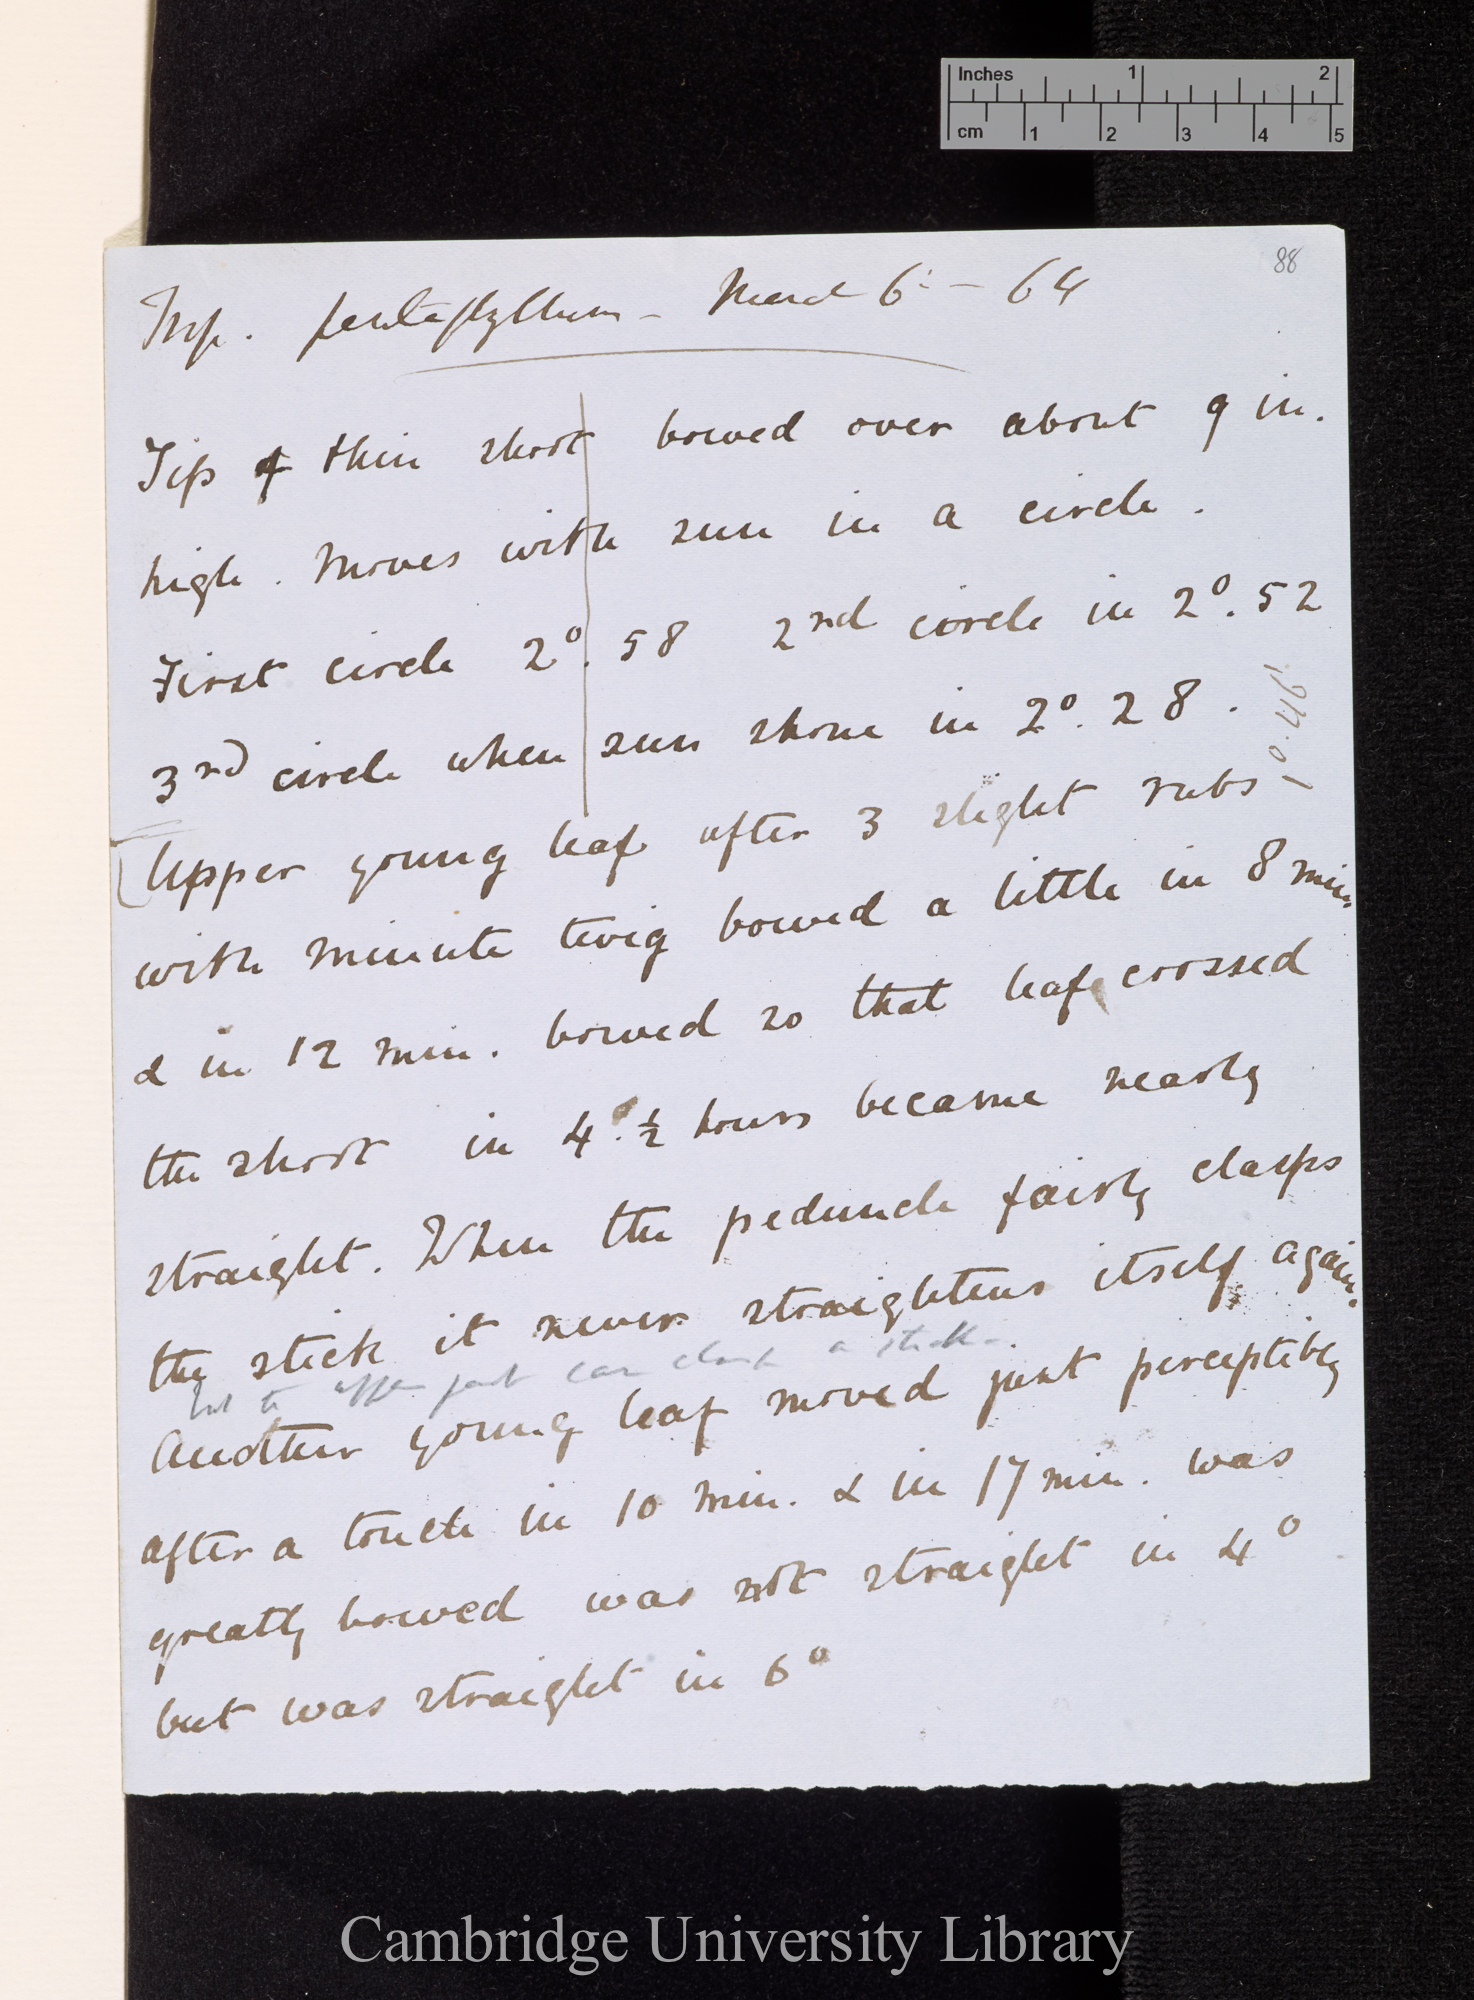 Inches 1 2
cm 1 2 3 4 5
88
Trop. pentaphyllum – March 6: – 64
Tip of thin shoot bowed over about 9 in.
high. Moves with sun in a circle.
First circle 2°. 58 2nd circle in 2°. 52
3rd circle when sun shone in 2°. 28.
1°. 46'
Upper young leaf after 3 slight rubs
with minute twig bowed a little in 8 min.
& in 12 min. bowed so that leaf crossed
the shoot in 4. ½ hours became nearly
straight. When the peduncle fairly clasps
the stick it never straightens itself again.
but the upper part can clasp a stick –
Another young leaf moved just perceptibly
after a touch in 10 min. & in 17 min. was
greatly bowed was not straight in 4°
but was straight in 6°
Cambridge University Library